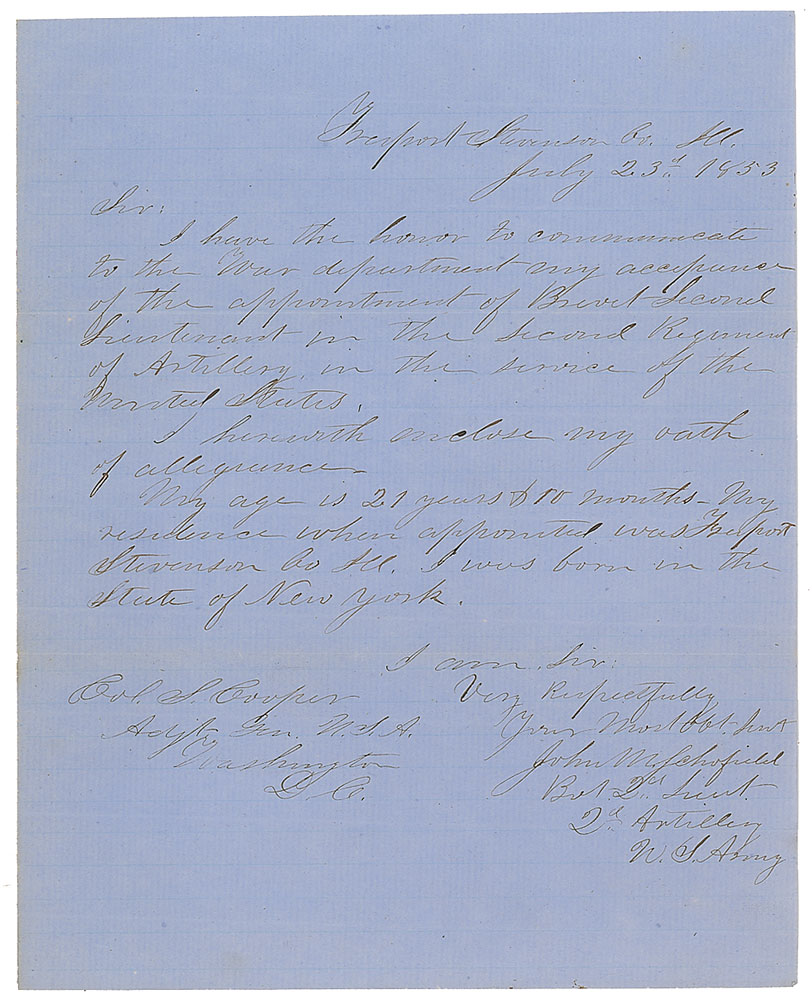 Freeport Stevenson Co. Ill.
July 23d. 1853
Sir:
I have the honor to communicate
to the War department my accepance
of the appointment of Brevet Second
Lieutenant in the Second Regiment
of Artillery, in the service of the
United States.
I herewith enclose my oath
of allegiance—
My age is 21 years & 10 months— My
residence when appointed was Freeport
Stevenson Co Ill. I was born in the
State of New York.
I am, Sir:
Very Respectfully
Your Most Obt. Svt
John M Schofield
Bvt. 2d. Lieut.
2d. Artillery
U. S. Army
Col. S. Cooper
Adjt. Gen. U. S. A.
Washington
D. C.